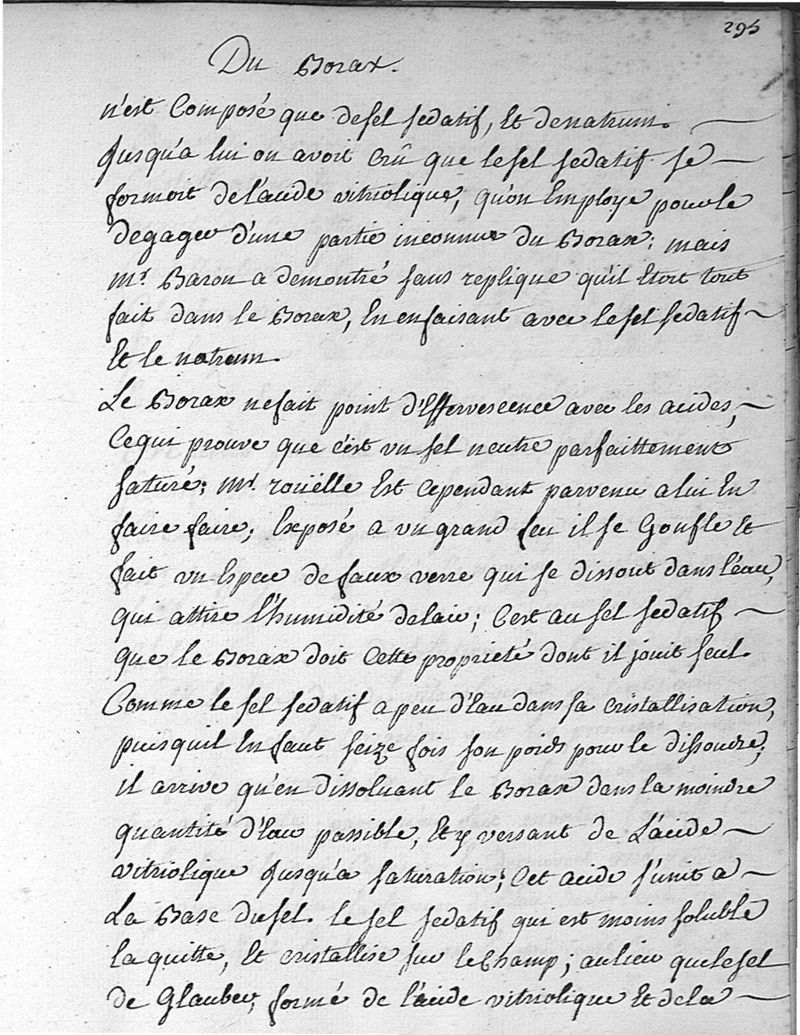 295
Du Borax.
n'est Composé que de sel sedatif, Et de natrum.
Jusqu'a lui on avoit crû que le sel sedatif se
formoit de l'acide vitriolique, qu'on Employe pour le
degager d'une partie inconnue du Borax; mais
Mr. Baron a demontré sans replique qu'il Etoit tout
fait dans le Borax, En en faisant avec le sel sedatif
Et le natrum.
Le Borax ne fait point d'Effervescence avec les acides,
Ce qui prouve que c'est un sel neutre parfaittement
saturé; Mr. roüelle Est cependant parvenu a lui En
faire faire; Exposé a un grand feu il se Gonfle Et
fait un Espece de faux verre qui se dissout dans l'eau,
qui attire l'humidité de l'air; C'est au sel sedatif
que le Borax doit Cette proprieté dont il jouit seul.
Comme le sel sedatif a peu d'Eau dans sa cristallisation,
puisquil En faut seize fois son poids pour le dissoudre;
il arrive qu'en dissoluant le Borax dans la moindre
quantité d'Eau passible, Et y versant de L'acide
vitriolique Jusqu'a saturation; Cet acide s'unit a
La Base du sel. Le sel sedatif qui est moins soluble
la quitte, Et cristallise sur le Champ; au lieu que le sel
de Glauber, formé de l'acide vitriolique Et de la